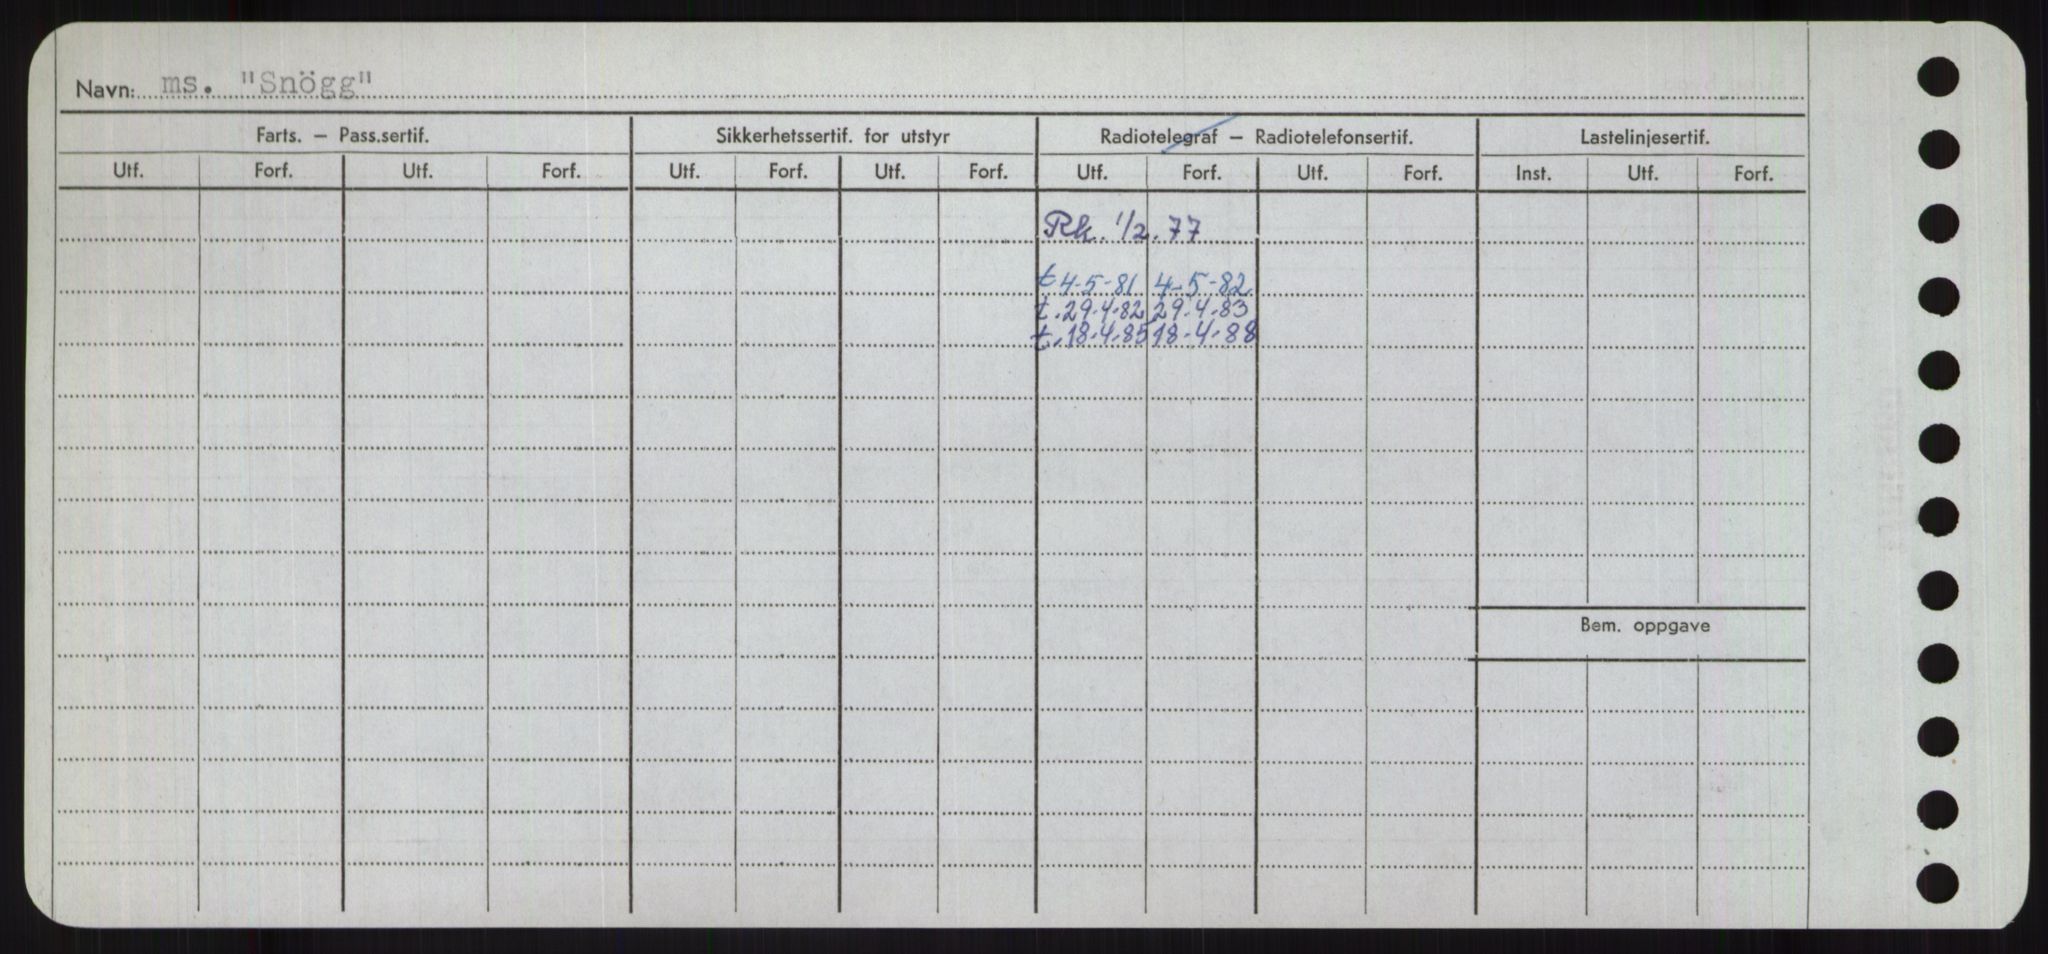 Navn: ms. "Snögg"
Farts. – Pass.sertif. Sikkerhetssertif. for utstyr Radiotelegraf – Radiotelefonsertif. Lastelinjesertif.
Utf. Forf. Utf. Forf. Utf. Forf. Utf. Forf. Utf. Forf. Utf. Forf. Inst. Utf. Forf.
Rk. 1/2.77
t 4-5-81 4-5-82
t.29.4.82 29.4.83
t.18.4.85 18-4-88
Bem. oppgave